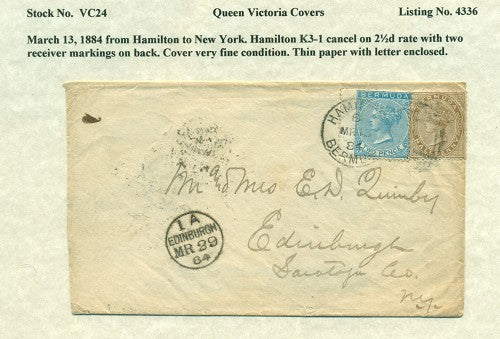 Stock No. VC24 Queen Victoria Covers Listing No. 4336
March 13, 1884 from Hamilton to New York. Hamilton K3-1 cancel on 2½d rate with two
receiver markings on back. Cover very fine condition. Thin paper with letter enclosed.
BERMUDA
TWO PENCE
HAM
MR
84
BERM
Mr and Mrs E. D. Quimby
Edinburgh
Saratoga Co.
N.Y.
1 A
EDINBURGH
MR 29
84